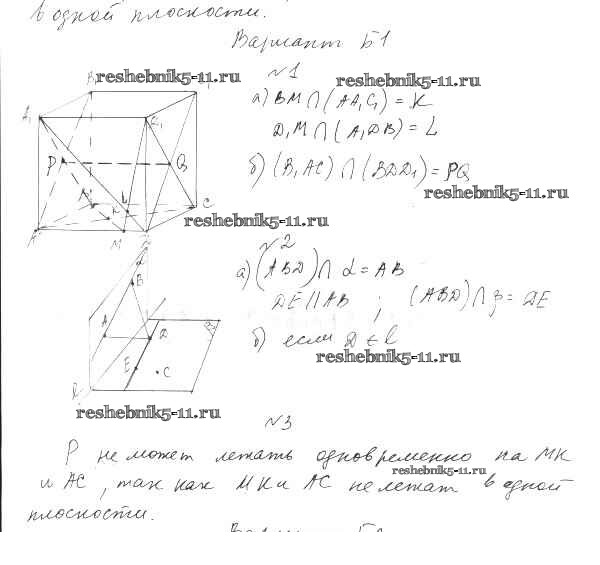 в одной плоскости.
Вариант Б1
№1
reshebnik5-11.ru
reshebnik5-11.ru
а) BM ∩ (AA₁C₁) = K
D₁M ∩ (A₁DB) = L
б) (B₁AC) ∩ (BDD₁) = PQ
reshebnik5-11.ru
reshebnik5-11.ru
A₁
P
Q
L
K
C
A
M
№2
а) (ABD) ∩ α = AB
DE || AB ; (ABD) ∩ β = DE
б) если D ∈ l
reshebnik5-11.ru
α
B
A
D
E
C
β
l
reshebnik5-11.ru
№3
P не может лежать одновременно на MK
reshebnik5-11.ru
и AC, так как MK и AC не лежат в одной
плоскости.